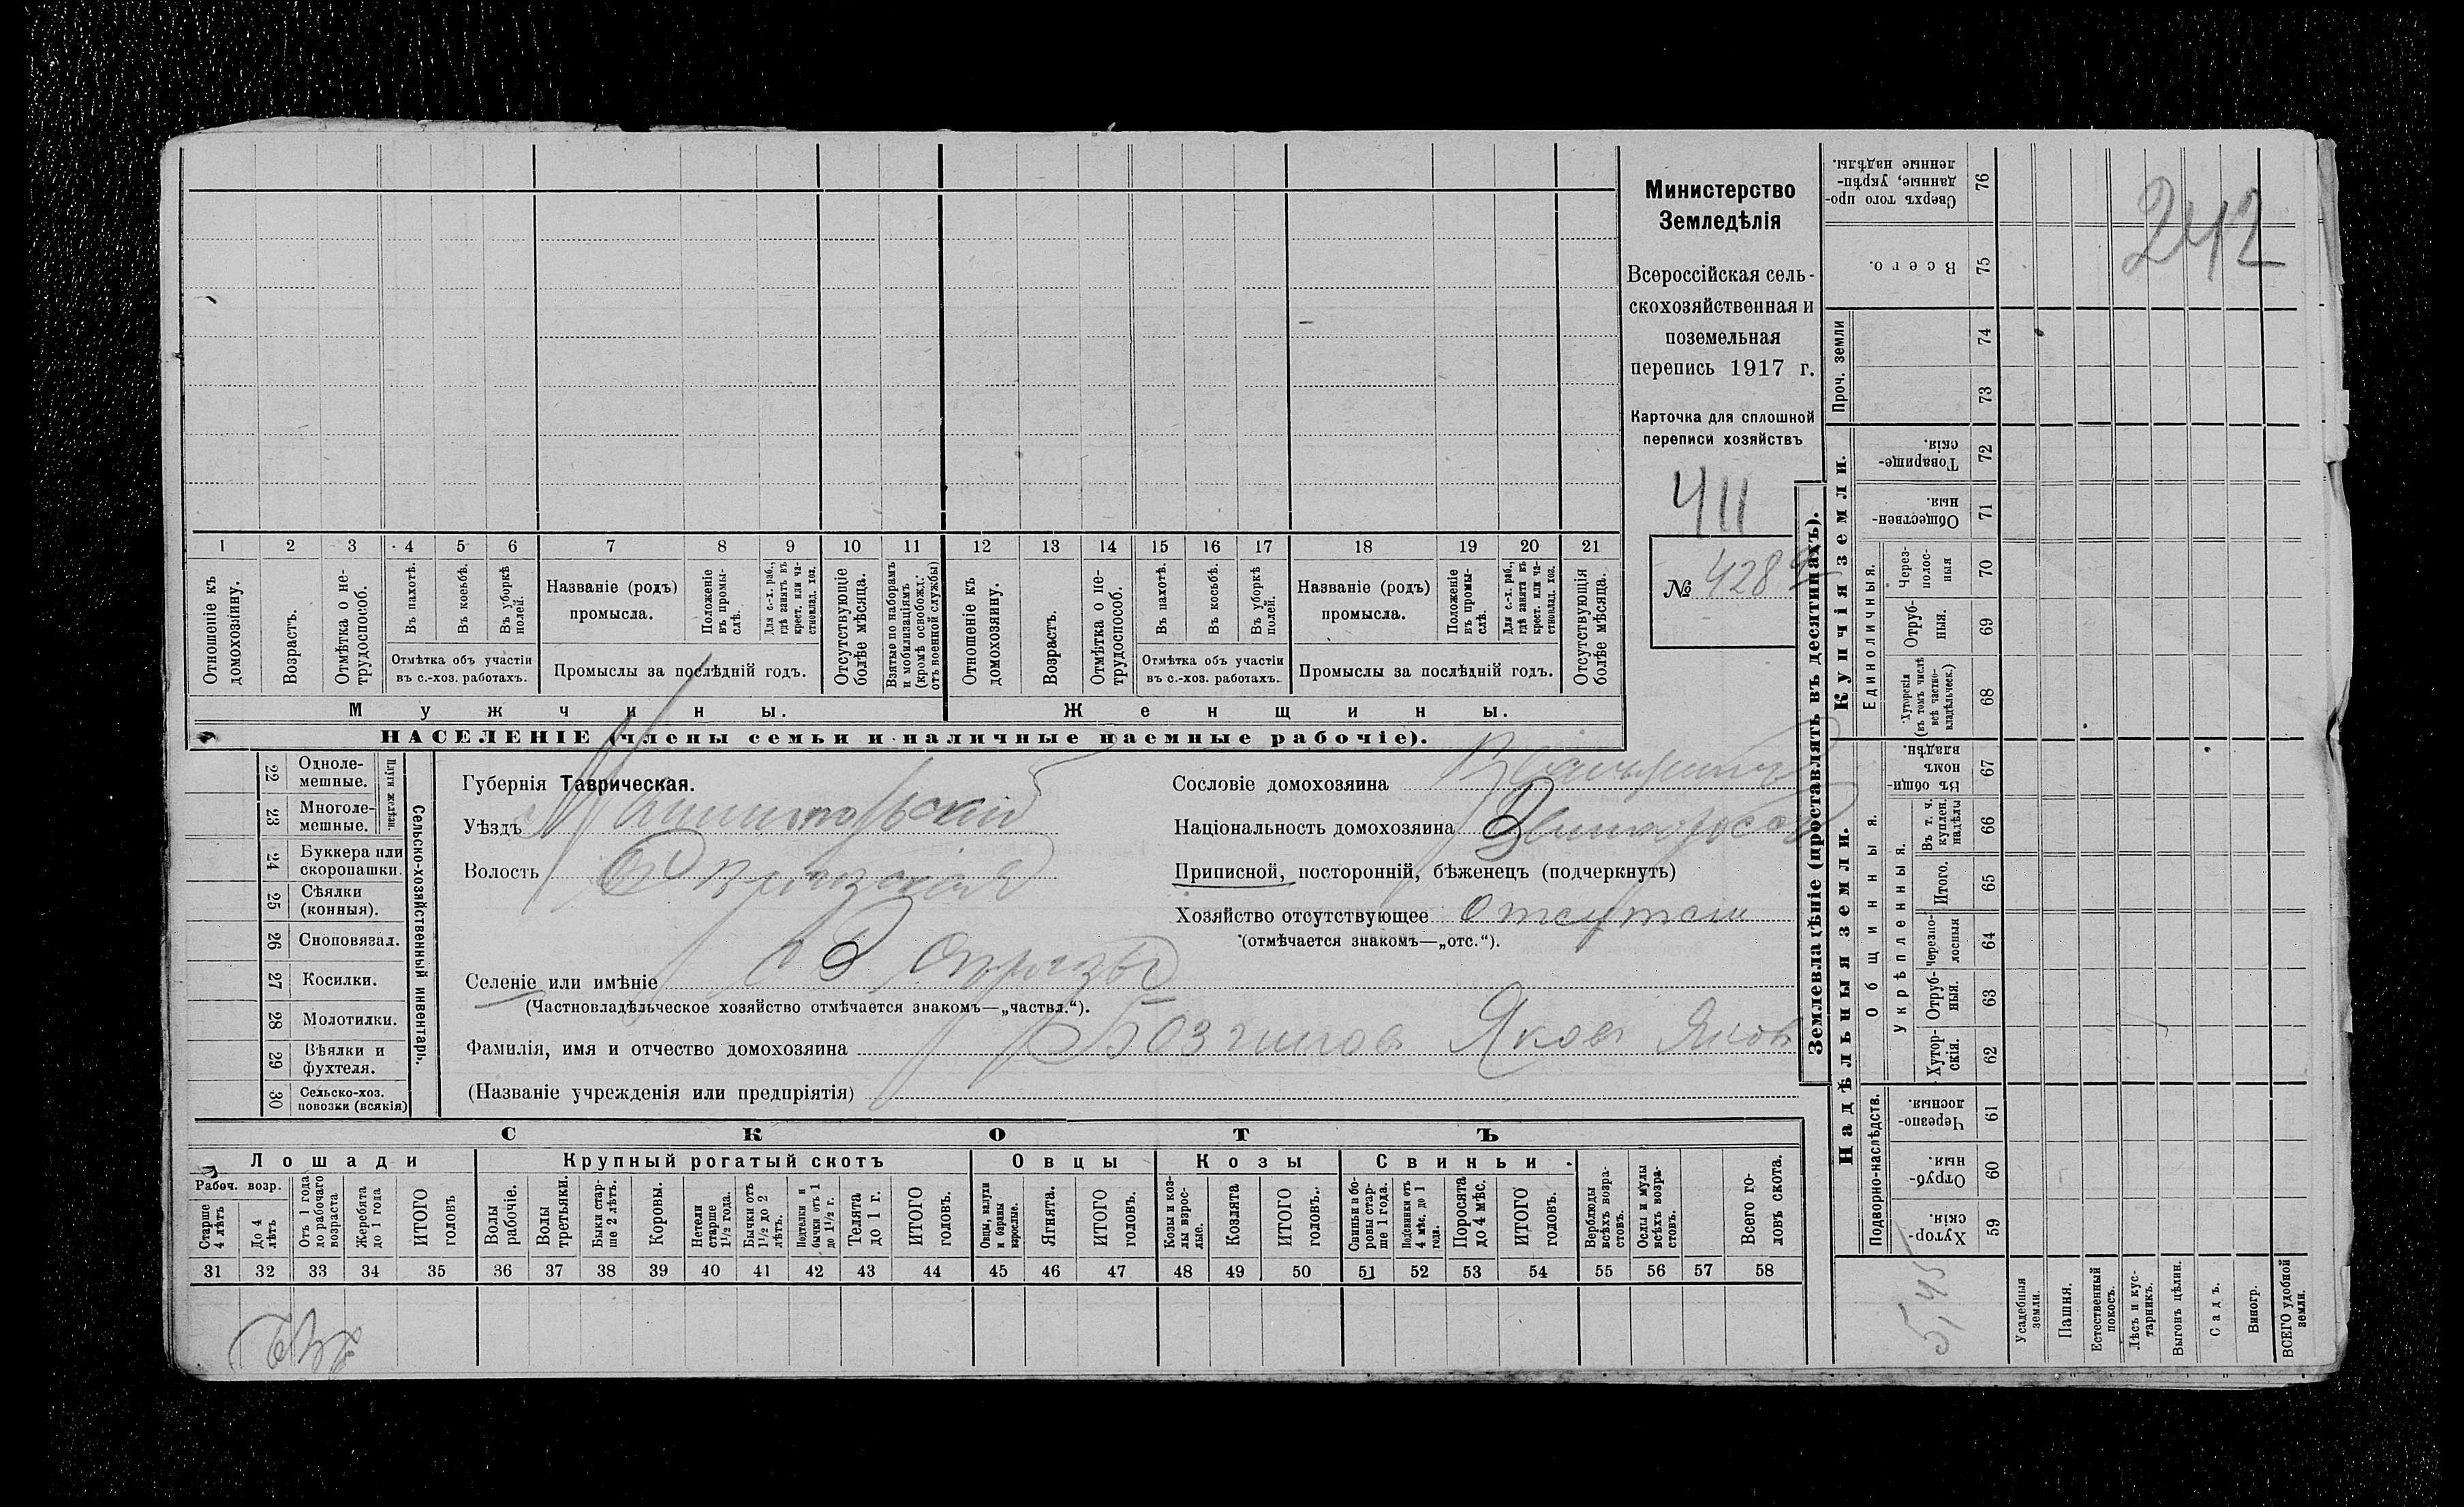 Министерство
Земледѣлія
Всероссійская сель-
скохозяйственная и
поземельная
перепись 1917 г.
Карточка для сплошной
переписи хозяйствъ
411
№ 428
242
1 2 3 4 5 6 7 8 9 10 11 12 13 14 15 16 17 18 19 20 21
Отношеніе къ домохозяину.
Возрастъ.
Отмѣтка о не-трудоспособ.
Въ пахотѣ.
Въ косьбѣ.
Въ уборкѣ полей.
Отмѣтка объ участіи
въ с.-хоз. работахъ.
Названіе (родъ)
промысла.
Положеніе въ промы-слѣ.
Для с.-х. раб., гдѣ занятъ въ крест. или ча-стновлад. хоз.
Промыслы за послѣдній годъ.
Отсутствующіе болѣе мѣсяца.
Взятые по наборамъ и мобилизаціямъ (кромѣ освобожд. отъ военной службы)
Отношеніе къ домохозяину.
Возрастъ.
Отмѣтка о не-трудоспособ.
Въ пахотѣ.
Въ косьбѣ.
Въ уборкѣ полей.
Отмѣтка объ участіи
въ с.-хоз. работахъ.
Названіе (родъ)
промысла.
Положеніе въ промы-слѣ.
Для с.-х. раб., гдѣ занята въ крест. или ча-стновлад. хоз.
Промыслы за послѣдній годъ.
Отсутствующія болѣе мѣсяца.
Мужчины.
Женщины.
НАСЕЛЕНІЕ (члены семьи и наличные наемные рабочіе).
22 Одноле-мешные.
23 Многоле-мешные.
Плуги желѣзн.
24 Буккера или скоропашки.
25 Сѣялки (конныя).
26 Сноповязал.
27 Косилки.
28 Молотилки.
29 Вѣялки и фухтеля.
30 Сельско-хоз. повозки (всякія)
Сельско-хозяйственный инвентарь.
Губернія Таврическая.
Уѣздъ
Волость
Селеніе или имѣніе
(Частновладѣльческое хозяйство отмѣчается знакомъ—„частвл.“).
Фамилія, имя и отчество домохозяина Яков Яков
(Названіе учрежденія или предпріятія)
Сословіе домохозяина
Національность домохозяина
Приписной, посторонній, бѣженецъ (подчеркнуть)
Хозяйство отсутствующее
(отмѣчается знакомъ—„отс.“).
СКОТЪ
Лошади
Крупный рогатый скотъ
Овцы
Козы
Свиньи.
Рабоч. возр.
Старше 4 лѣтъ
До 4 лѣтъ
Отъ 1 года до рабочаго возраста
Жеребята до 1 года
ИТОГО головъ
Волы рабочіе.
Волы третьяки.
Быки стар-ше 2 лѣтъ.
Коровы.
Нетели старше 1½ года.
Бычки отъ 1½ до 2 лѣтъ.
Подтелки и бычки отъ 1 до 1½ г.
Телята до 1 г.
ИТОГО головъ.
Овцы, валухи и бараны взрослые.
Ягнята.
ИТОГО головъ.
Козы и коз-лы взрос-лые.
Козлята
ИТОГО головъ.
Свиньи и бо-ровы стар-ше 1 года.
Подсвинки отъ 4 мѣс. до 1 года.
Поросята до 4 мѣс.
ИТОГО головъ.
Верблюды всѣхъ возра-стовъ.
Ослы и мулы всѣхъ возра-стовъ.
Всего го-ловъ скота.
31 32 33 34 35 36 37 38 39 40 41 42 43 44 45 46 47 48 49 50 51 52 53 54 55 56 57 58
Землевладѣніе (проставлять въ десятинахъ).
Купчія земли.
Надѣльныя земли.
Проч. земли
76 Сверхъ того про-данные, укрѣп-ленные надѣлы.
75 Всего.
74
73
72 Товарище-скія.
71 Обществен-ныя.
Единоличныя.
70 Через-полос-ныя
69 Отруб-ныя.
68 Хуторскія (въ томъ числѣ всѣ частно-владѣльческ.)
Общинныя.
67 Въ общи-номъ владѣн.
Укрѣпленныя.
66 Въ т. ч. куплен. надѣлы
65 Итого.
64 Черезпо-лосныя
63 Отруб-ныя.
62 Хутор-скія.
Подворно-наслѣдств.
61 Черезпо-лосныя.
60 Отруб-ныя.
59 Хутор-скія.
5,45
Усадебныя земли.
Пашня.
Естественный покосъ.
Лѣсъ и кус-тарникъ.
Выгонъ цѣлин.
Садъ.
Виногр.
ВСЕГО удобной земли.